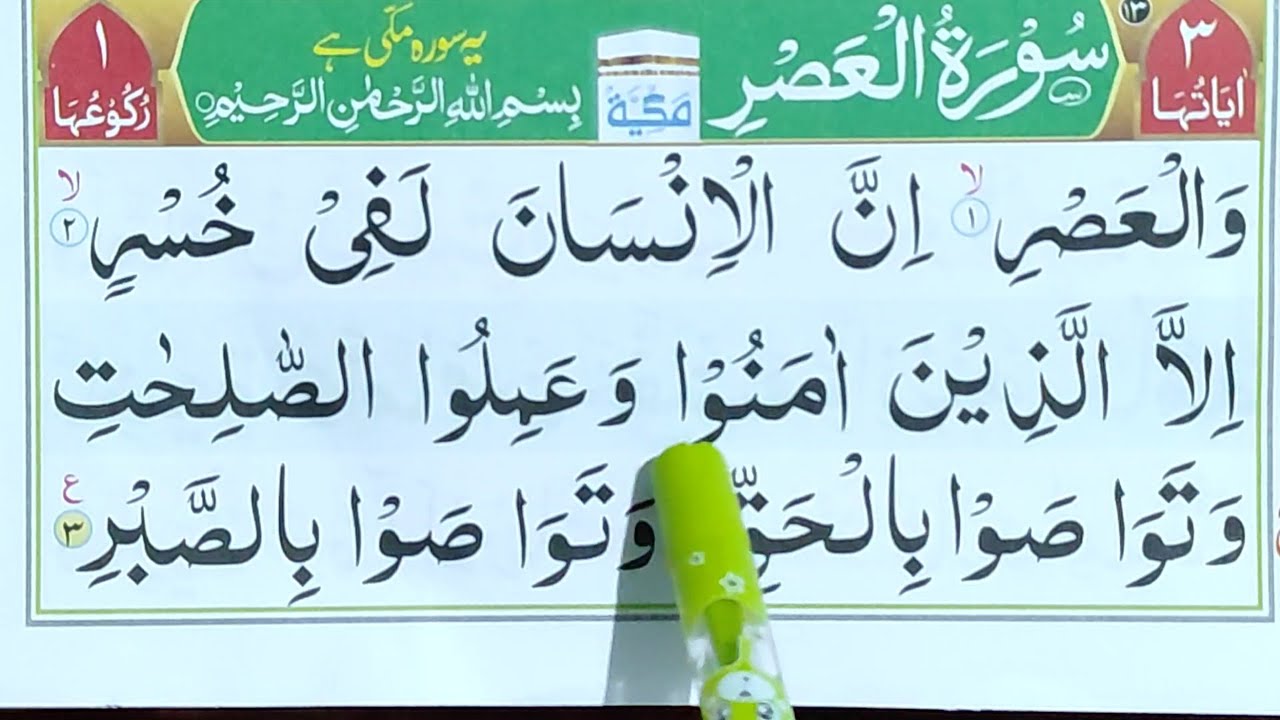 ٣ اٰيَاتُهَا
١٣
سُوْرَةُ الْعَصْرِ
مَكِّيَّةٌ
یہ سورہ مکّی ہے
بِسْمِ اللّٰهِ الرَّحْمٰنِ الرَّحِيْمِ
١ رُكُوْعُهَا
وَالْعَصْرِ ۙ ١ اِنَّ الْاِنْسَانَ لَفِيْ خُسْرٍ ۙ ٢
اِلَّا الَّذِيْنَ اٰمَنُوْا وَ عَمِلُوا الصّٰلِحٰتِ
وَتَوَا صَوْا بِالْحَقِّ وَتَوَا صَوْا بِالصَّبْرِ ع ٣